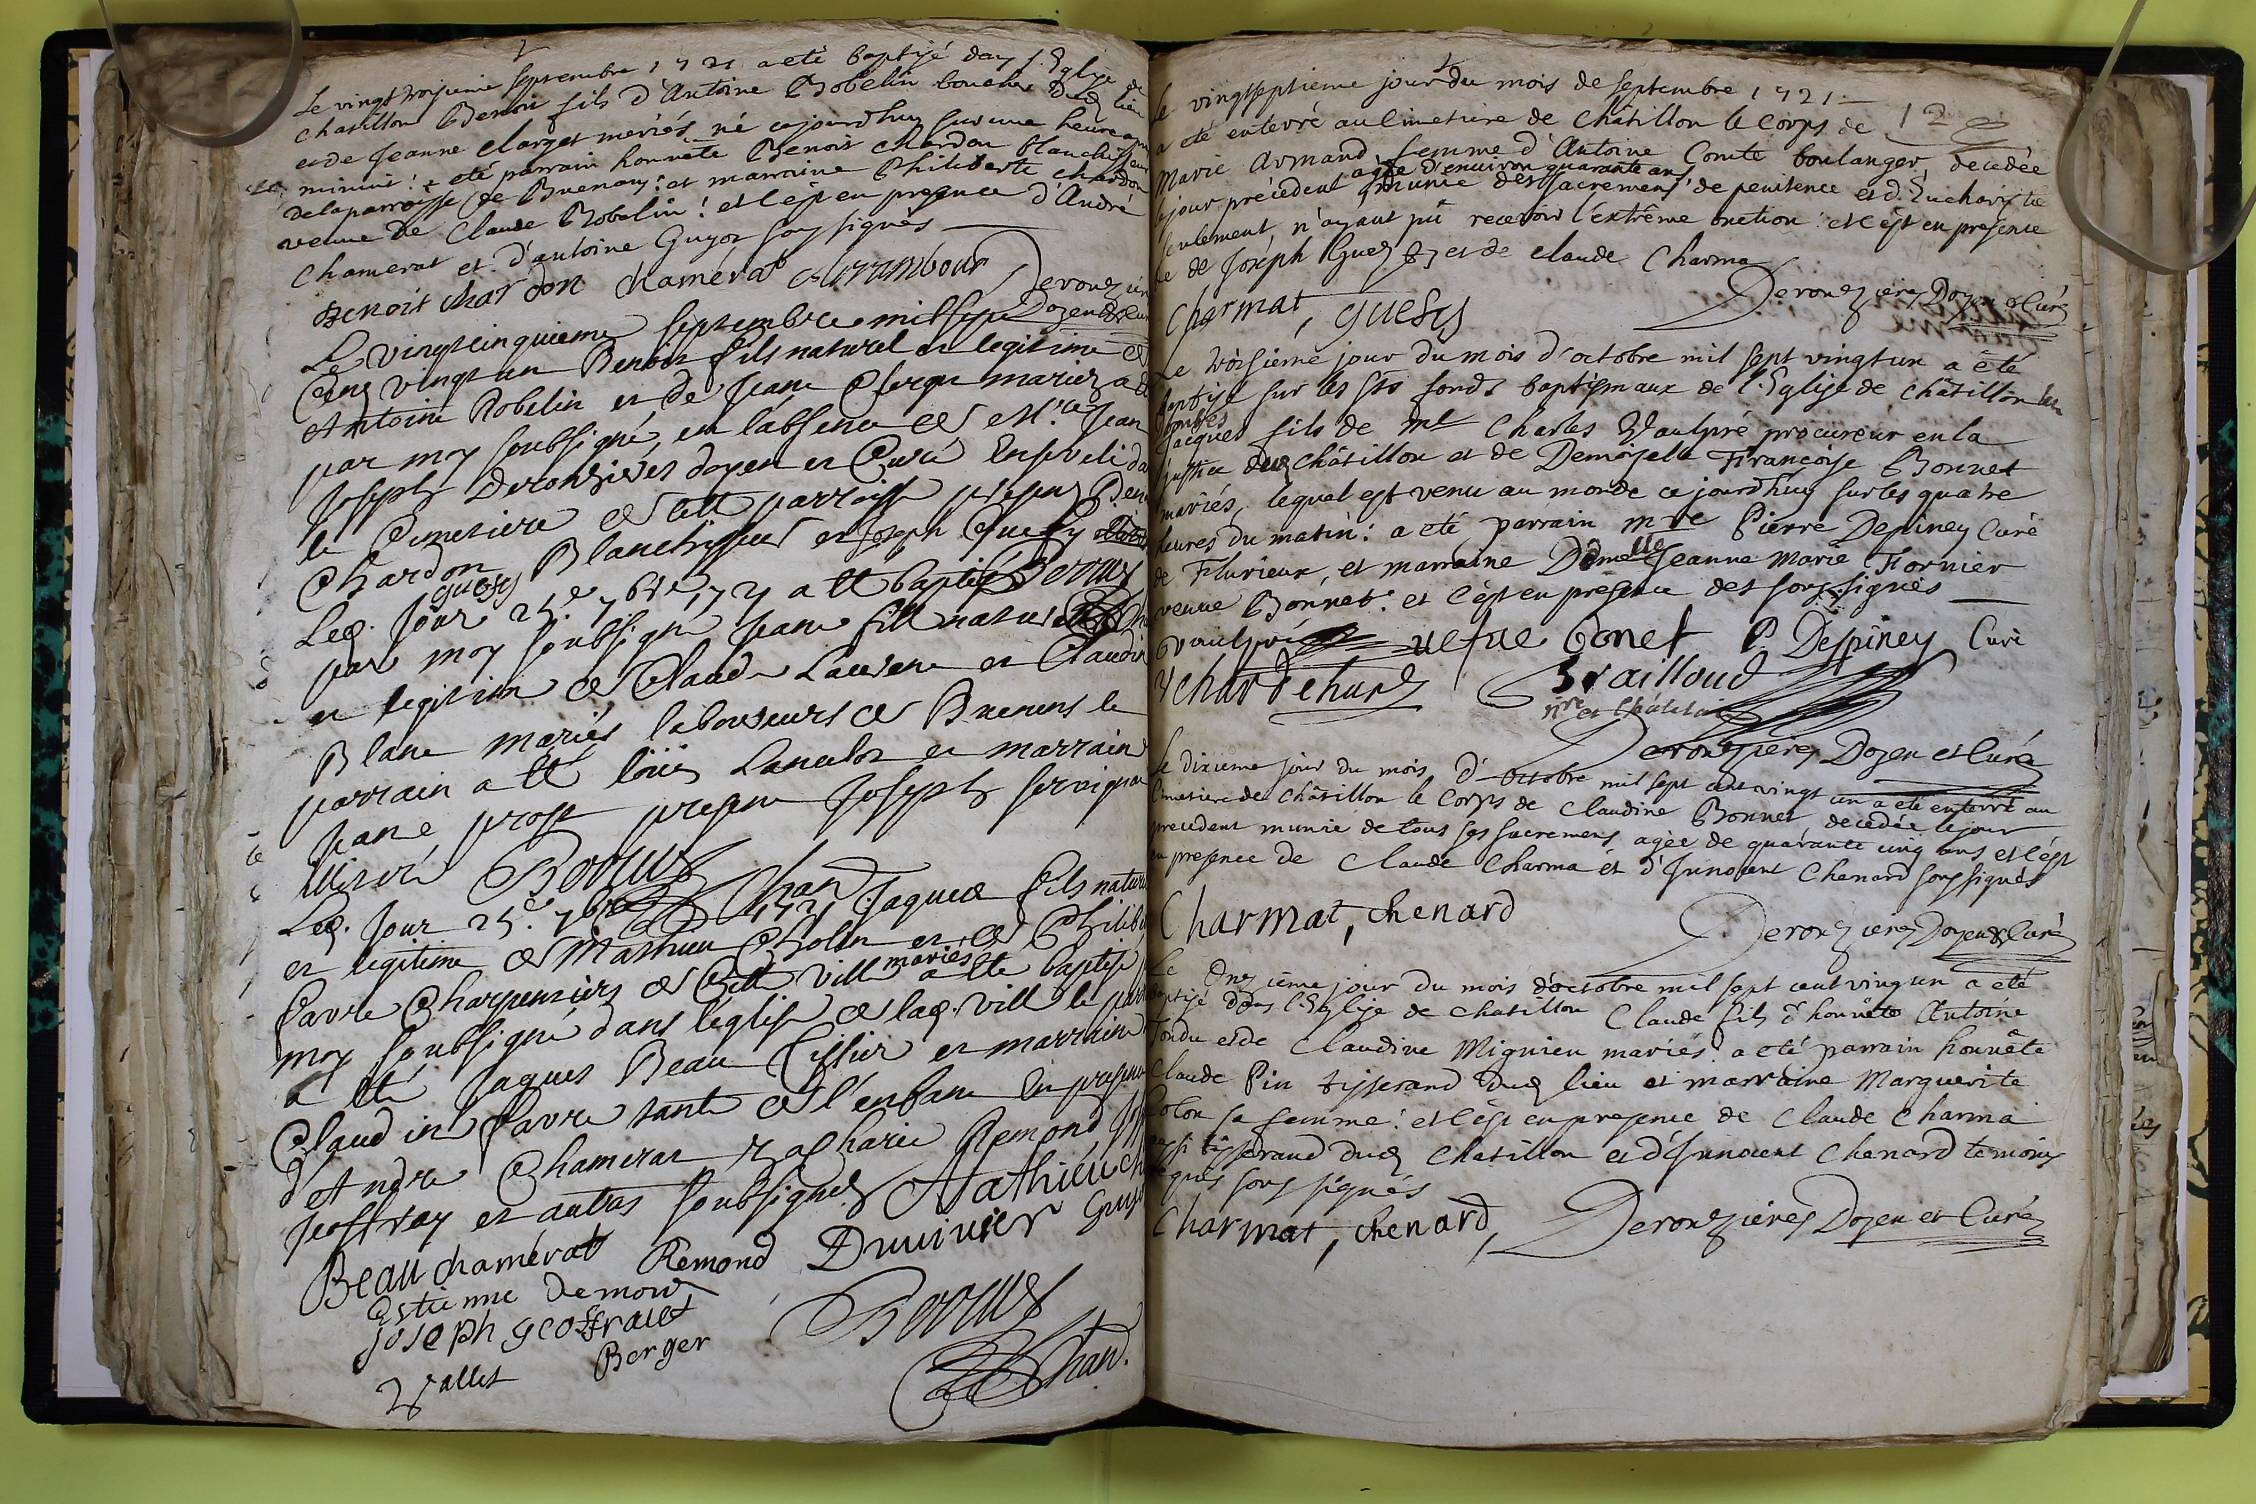 Le vingt troisieme septembre 1721 a eté baptisé dans l'Eglise de
chatillon Benoit fils d'Antoine Robelin boucher dud lieu
et de Jeanne clarget mariés né cejourd'huy sur une heure
minuit: a eté parrain honnête Benoit chardon blanchisseur
de la parroisse de Buenans: et marraine Philiberte chardon
veuve de Claude Robelin: et c'est en presence d'André
Chamerat et d'antoine Guyot soussignés
Benoit chardon chamérat
Derouzieres
Doyen & Curé
Le vingt cinquieme septembre mil sept
Cens vingt un Benoist fils naturel et legitime de
Antoine Robelin et de Jeane Clerge mariez a
par moy soubsigné, en labsence de Mre Jean
Joseph Derouzieres doyen et Curé Enseveli da
le Cimetiere de cette parroisse presens Beno
Chardon Blanchisseur et Joseph Guesy
guesy
Led. Jour 25e 7bre 1721 a eté baptisé
par moy soubsigné Jeane fille naturelle
et legitime de Claude Laurent et Claudine
Blanc mariés laboureurs de Buenens le
parrain a eté loüis Lancelot et marraine
Jeane presens Joseph
Led. Jour 25e 7bre 1721 Jaques fils natur
et legitime de Mathieu Cholin et de Philib
mariés
favre Charpentiers de Cette ville a eté baptisé
moy soubsigné dans l'église de lad. ville le parr
a eté Jaques Beau tissier et marraine
Claudine favre tante de l'enfant En presen
d'Andre Chamerat Zacharie Remond
Jeoffray et autres soubsignez Mathieu
Beau chamérat Remond Duvivier Guyot
Estienne Demour
Joseph geoffraiet
Vallet Berger
12
Le vingtseptieme jour du mois de septembre 1721
a eté enterré au Cimetiere de Châtillon le Corps de
Marie Armand femme d'Antoine Comte boulanger decedée
agée d'environ quarante ans
le jour précédent munie des sacremens de penitence et d'Eucharistie
seulement, n'ayant pû recevoir l'extrême onction et c'est en presence
de Joseph Guesy et de claude Charma
Charmat, guesy
Derouzieres Doyen & Curé
Le troisieme jour du mois d'octobre mil sept vingt un a eté
baptisé sur les sts fonds baptismaux de l'Eglise de châtillon
Jacques fils de me Charles Vaulpré procureur en la
justice dud châtillon et de Demoiselle Françoise Bonnet
mariés, lequel est venu au monde cejourd'huy sur les quatre
heures du matin: a eté parrain mre Pierre Depiney Curé
de Flurieux, et marraine Demelle Jeanne Marie Fornier
veuve Bonnet: et c'est en présence des soussignés
Vaulpré vefue bonet P. Despiney Curé
Brailloud
nre et Châtelain
Derouzieres Doyen et Curé
Le dixieme jour du mois d'octobre mil sept cent vingt un a eté enterré au
Cimetiere de Châtillon le Corps de Claudine Bonnet decedée le jour
precedent munie de tous ses sacremens agée de quarante cinq ans et c'est
en presence de Claude Charma et d'Innocent Chenard soussignés
Charmat, chenard
Derouzieres Doyen & Curé
Le Onzieme jour du mois d'octobre mil sept cent vingt un a eté
baptisé dans l'Eglise de chatillon Claude fils d'honnête Antoine
Tondu et de Claudine Mignieu mariés: a eté parrain honnête
Claude Pin tisserand dud lieu et marraine Marguerite
Colon sa femme: et c'est en presence de Claude Charma
aussi tisserand dud Chatillon et d'Innocent Chenard temoins
requis soussignés
Charmat, chenard, Derouzieres Doyen et Curé